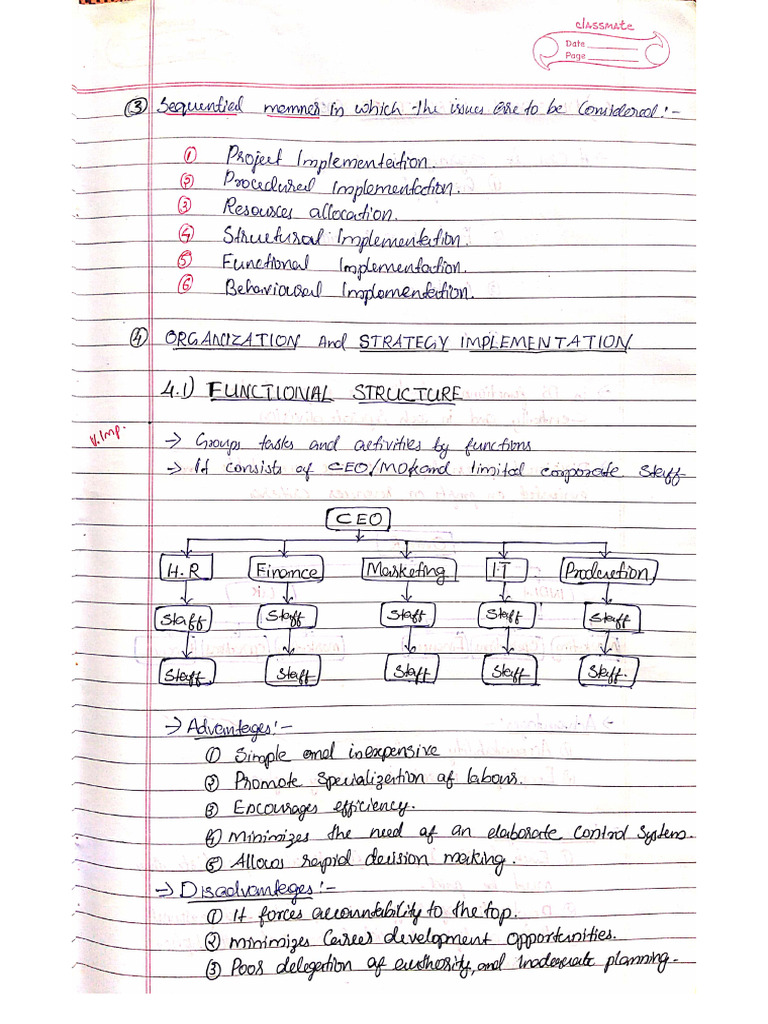 classmate
Date
Page
③ Sequential manner in which the issues are to be Considered:-
① Project Implementation.
② Procedural Implementation.
③ Resources allocation.
④ Structural Implementation.
⑤ Functional Implementation.
⑥ Behavioural Implementation.
④ ORGANIZATION and STRATEGY IMPLEMENTATION.
4.1) FUNCTIONAL STRUCTURE
V.Imp.
→ Groups tasks and activities by functions
→ It consists of CEO/MD and limited corporate Staff
CEO
H.R Finance Marketing I.T Production
Staff Staff Staff Staff Staff
Staff Staff Staff Staff Staff.
→ Advantages:-
① Simple and inexpensive
② Promote Specialization of labour.
③ Encourages efficiency.
④ Minimizes the need of an elaborate Control System.
⑤ Allows rapid decision making.
→ Disadvantages:-
① It forces accountability to the top.
② Minimizes Career development opportunities.
③ Poor delegation of authority, and inadequate planning.